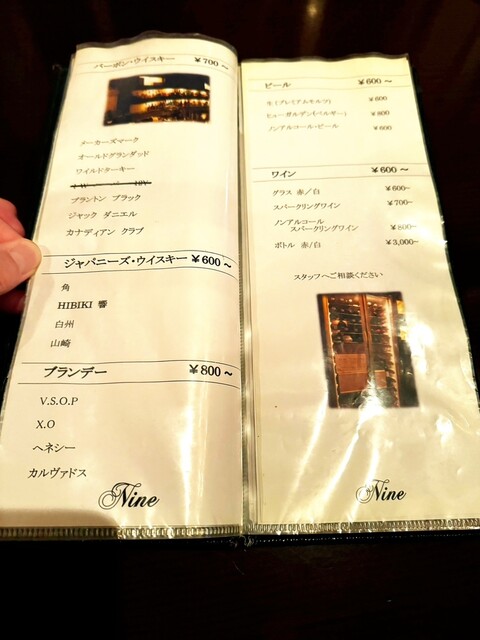 バーボン・ウイスキー ￥700～
メーカーズマーク
オールドグランダッド
ワイルドターキー
ブラントン ブラック
ジャック ダニエル
カナディアン クラブ
ジャパニーズ・ウイスキー ￥600～
角
HIBIKI 響
白州
山崎
ブランデー ￥800～
V.S.O.P
X.O
ヘネシー
カルヴァドス
Nine
ビール ￥600～
生(プレミアムモルツ) ￥600
ヒューガルデン(ベルギー) ￥800
ノンアルコール・ビール ￥600
ワイン ￥600～
グラス 赤／白 ￥600~
スパークリングワイン ￥700~
ノンアルコール
スパークリングワイン ￥800~
ボトル 赤/白 ￥3,000~
スタッフへご相談ください
Nine